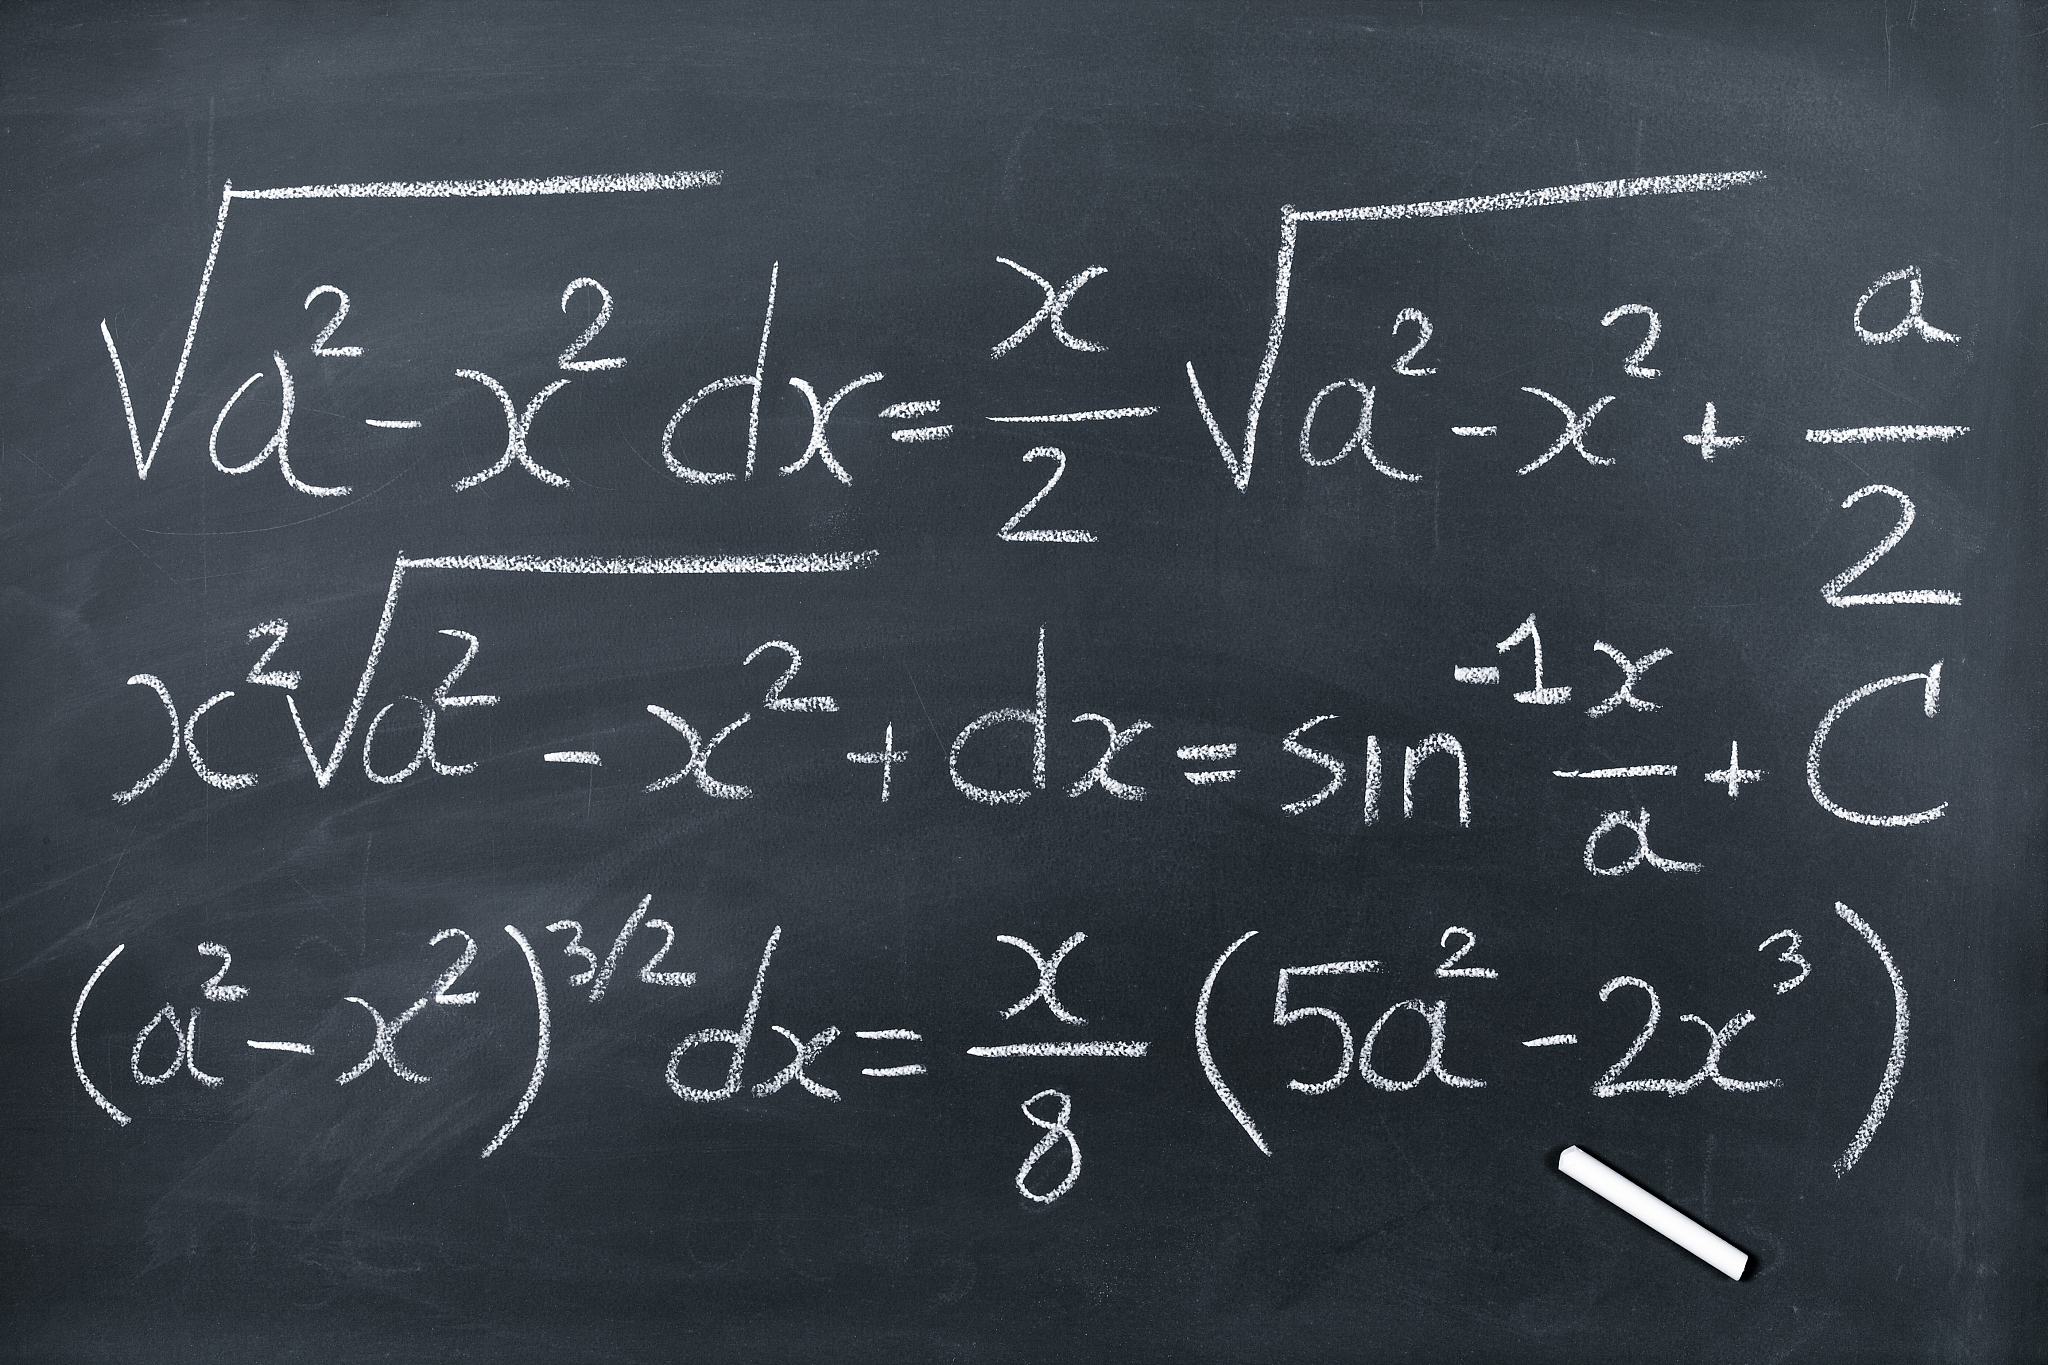 √(a² - x²) dx = x/2 √(a² - x²) + a/2
x² √(a² - x²) + dx = sin⁻¹ x/a + C
(a² - x²)^3/2 dx = x/8 (5a² - 2x³)